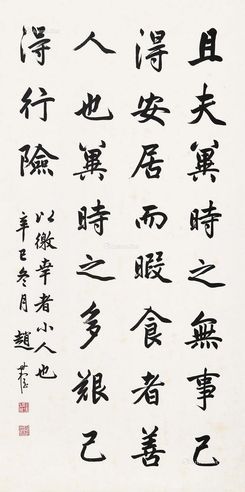 且夫冀時之無事己
得安居而暇食者善
人也冀時之多艱己
得行險
以徼幸者小人也
辛巳冬月 趙